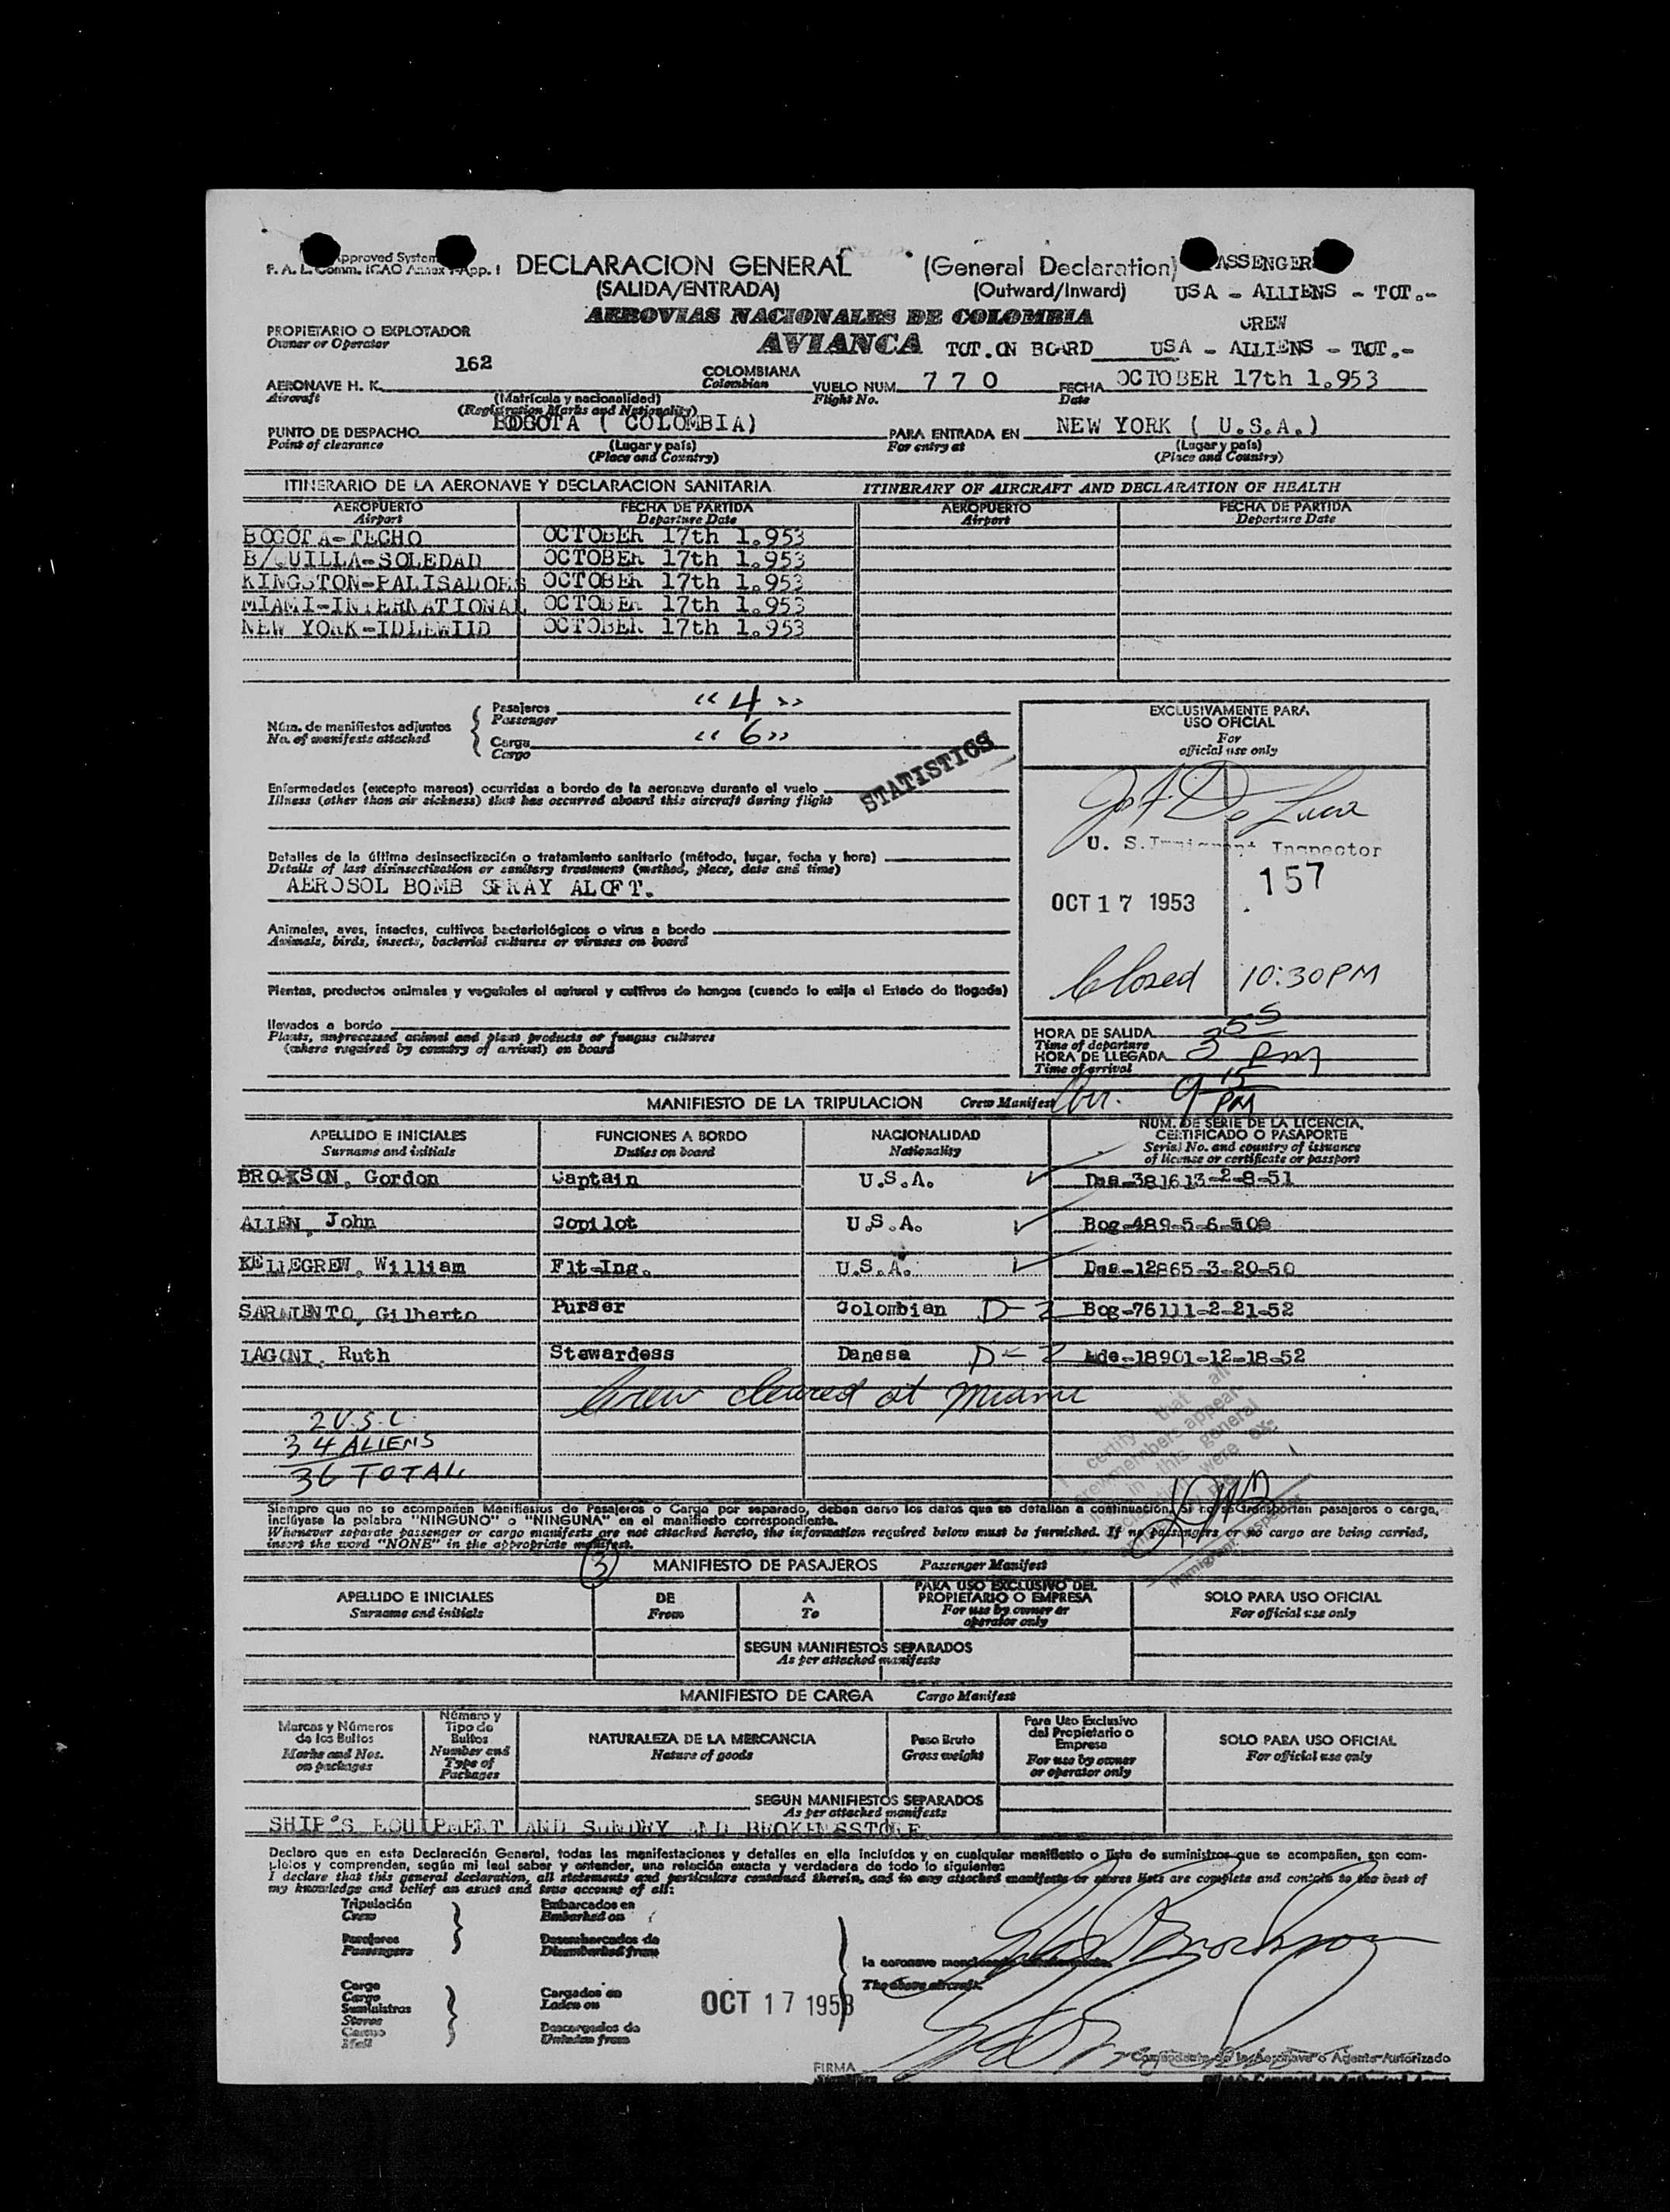 Approved System
F. A. L. Comm. ICAO Annex App. I
DECLARACION GENERAL (General Declaration)
(SALIDA/ENTRADA) (Outward/Inward)
PASSENGER
USA - ALLIENS - TOT.-
AEROVIAS NACIONALES DE COLOMBIA
CREW
PROPIETARIO O EXPLOTADOR
Owner or Operator
AVIANCA TOT.ON BOARD USA - ALLIENS - TOT.-
AERONAVE H. K. 162 COLOMBIANA VUELO NUM. 770 FECHA OCTOBER 17th 1.953
Aircraft (Matrícula y nacionalidad) Colombian Flight No. Date
(Registration Marks and Nationality)
PUNTO DE DESPACHO BOGOTA ( COLOMBIA) PARA ENTRADA EN NEW YORK ( U.S.A.)
Point of clearance (Lugar y país) For entry at (Lugar y país)
(Place and Country) (Place and Country)
ITINERARIO DE LA AERONAVE Y DECLARACION SANITARIA ITINERARY OF AIRCRAFT AND DECLARATION OF HEALTH
AEROPUERTO FECHA DE PARTIDA AEROPUERTO FECHA DE PARTIDA
Airport Departure Date Airport Departure Date
BOGOTA-TECHO OCTOBER 17th 1.953
B/QUILLA-SOLEDAD OCTOBER 17th 1.953
KINGSTON-PALISADOES OCTOBER 17th 1.953
MIAMI-INTERNATIONAL OCTOBER 17th 1.953
NEW YORK-IDLEWIID OCTOBER 17th 1.953
Núm. de manifiestos adjuntos
No. of manifests attached
Pasajeros "4"
Passenger
Carga "6"
Cargo
STATISTICS
EXCLUSIVAMENTE PARA
USO OFICIAL
For
official use only
Enfermedades (excepto mareos) ocurridas a bordo de la aeronave durante el vuelo
Illness (other than air sickness) that has occurred aboard this aircraft during flight
Jos. A. De Luca
U. S. Immigrant Inspector
157
OCT 17 1953
Closed 10:30 PM
Detalles de la última desinsectización o tratamiento sanitario (método, lugar, fecha y hora)
Details of last disinsectization or sanitary treatment (method, place, date and time)
AEROSOL BOMB SPRAY ALOFT.
Animales, aves, insectos, cultivos bacteriológicos o virus a bordo
Animals, birds, insects, bacterial cultures or viruses on board
Plantas, productos animales y vegetales al natural y cultivos de hongos (cuando lo exija el Estado de llegada)
llevados a bordo
Plants, unprocessed animal and plant products or fungus cultures
(where required by country of arrival) on board
HORA DE SALIDA 3 55 PM
Time of departure
HORA DE LLEGADA
Time of arrival
Arr. 9 15 PM
MANIFIESTO DE LA TRIPULACION Crew Manifest
APELLIDO E INICIALES FUNCIONES A BORDO NACIONALIDAD NUM. DE SERIE DE LA LICENCIA, CERTIFICADO O PASAPORTE
Surname and initials Duties on board Nationality Serial No. and country of issuance of license or certificate or passport
BROKSON, Gordon Captain U.S.A. Dsa-381613-2-8-51
ALLEN, John Copilot U.S.A. Bog-489-5-6-50
KELLEGREW, William Flt-Ing. U.S.A. Dsa-12865-3-20-50
SARMIENTO, Gilberto Purser Colombian D-2 Bog-76111-2-21-52
LAGONI, Ruth Stewardess Danesa D-2 Ade-18901-12-18-52
Crew cleared at Miami
2 U.S.C.
34 ALIENS
36 TOTAL
Siempre que no se acompañen Manifiestos de Pasajeros o Carga por separado, deben darse los datos que se detallan a continuación. Si no se transportan pasajeros o carga,
inclúyase la palabra "NINGUNO" o "NINGUNA" en el manifiesto correspondiente.
Whenever separate passenger or cargo manifests are not attached hereto, the information required below must be furnished. If no passengers or no cargo are being carried,
insert the word "NONE" in the appropriate manifest.
3
MANIFIESTO DE PASAJEROS Passenger Manifest
APELLIDO E INICIALES DE A PARA USO EXCLUSIVO DEL PROPIETARIO O EMPRESA SOLO PARA USO OFICIAL
Surname and initials From To For use by owner or operator only For official use only
SEGUN MANIFIESTOS SEPARADOS
As per attached manifests
MANIFIESTO DE CARGA Cargo Manifest
Marcas y Números de los Bultos Número y Tipo de Bultos NATURALEZA DE LA MERCANCIA Peso Bruto Para Uso Exclusivo del Propietario o Empresa SOLO PARA USO OFICIAL
Marks and Nos. on packages Number and Type of Packages Nature of goods Gross weight For use by owner or operator only For official use only
SEGUN MANIFIESTOS SEPARADOS
As per attached manifests
SHIP'S EQUIPMENT AND SUNDRY
Declaro que en esta Declaración General, todas las manifestaciones y detalles en ella incluídos y en cualquier manifiesto o lista de suministros que se acompañen, son com-
pletos y comprenden, según mi leal saber y entender, una relación exacta y verdadera de todo lo siguiente:
I declare that this general declaration, all statements and particulars contained therein, and in any attached manifests or stores lists are complete and contain to the best of
my knowledge and belief an exact and true account of all:
Tripulación Embarcados en
Crew Embarked on
Pasajeros Desembarcados de
Passengers Disembarked from
la aeronave mencionada
The above aircraft
Carga Cargados en
Cargo Laden on
Suministros
Stores
Correo Descargados de
Mail Unladen from
OCT 17 1953
FIRMA
Comandante de la Aeronave o Agente Autorizado